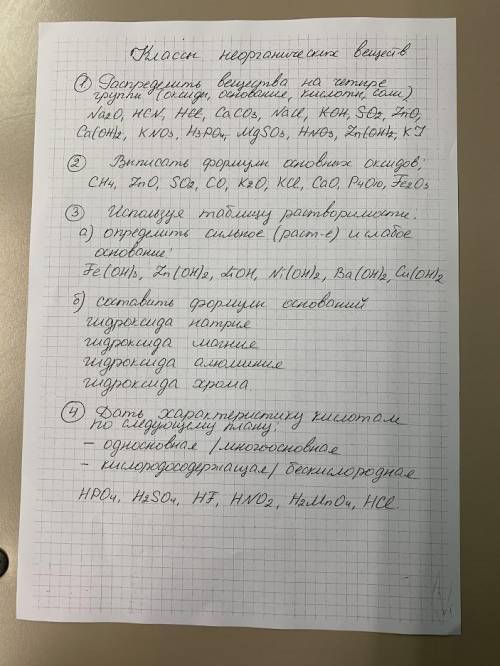 Классы неорганических веществ
① Распределить вещества на четыре
группы (оксиды, основания, кислоты, соли)
Na2O, HCN, HCl, CaCO3, NaCl, KOH, SO2, ZnO,
Ca(OH)2, KNO3, H3PO4, MgSO3, HNO3, Zn(OH)2, KJ
② Выписать формулы основных оксидов:
CH4, ZnO, SO2, CO, K2O, KCl, CaO, P4O10, Fe2O3
③ Используя таблицу растворимости:
а) определить сильное (раст-е) и слабое
основание:
Fe(OH)3, Zn(OH)2, LiOH, Ni(OH)2, Ba(OH)2, Cu(OH)2
б) составить формулы оснований
гидроксида натрия
гидроксида магния
гидроксида алюминия
гидроксида хрома
④ Дать характеристику кислотам
по следующему плану:
– одноосновная / многоосновная
– кислородосодержащая / бескислородная
HPO4, H2SO4, HF, HNO2, H2MnO4, HCl.